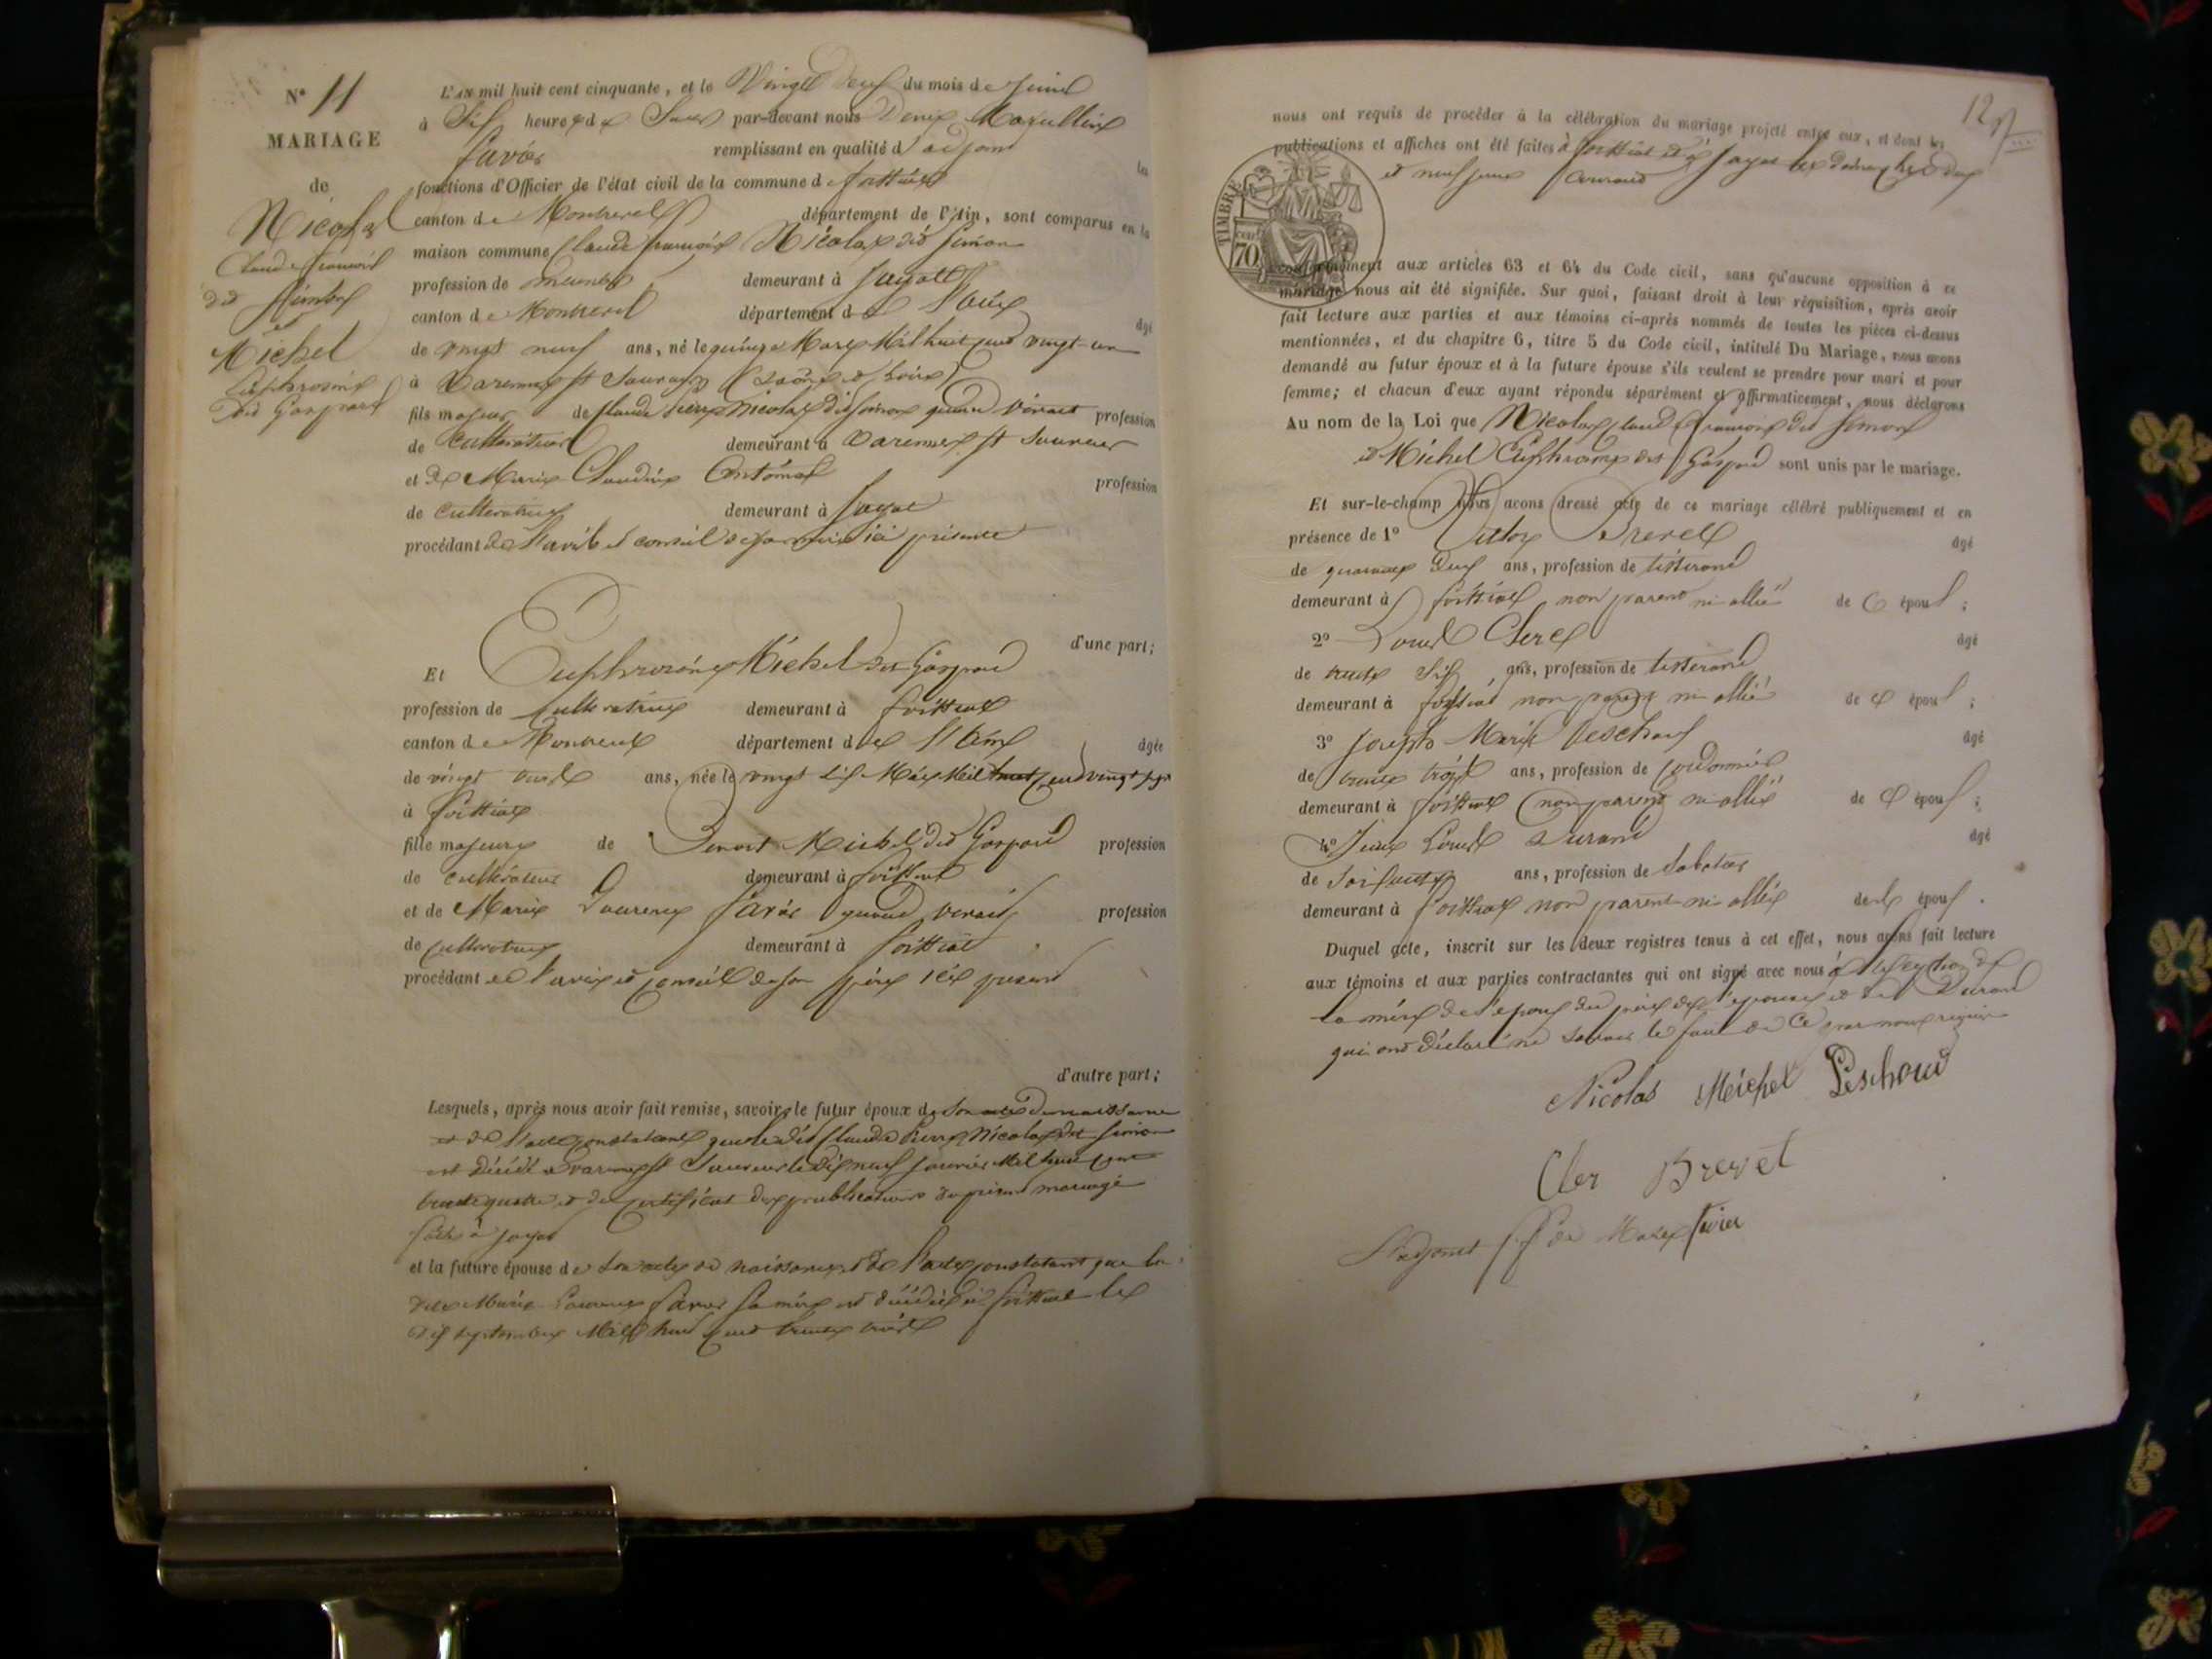 N° 11
MARIAGE
de
Nicolas
Claude françois
dit Simon
et
Michel
Euphrosine
dit Gaspard
L'AN mil huit cent cinquante, et le Vingt neuf du mois de juin
à Six heures du Soir par-devant nous Denis Marullin
favier remplissant en qualité d'adjoint les
fonctions d'Officier de l'état civil de la commune de foissiat
canton de Montrevel département de l'Ain, sont comparus en la
maison commune Claude françois Nicolas dit Simon
profession de meunier demeurant à Jayat
canton de Montrevel département de l'ain âgé
de vingt neuf ans, né le quinze Mars Mil huit cent vingt-un
à Varennes St Sauveur (Saône et Loire)
fils majeur de Claude Pierre Nicolas dit Simon quand vivait profession
de cultivateur demeurant à Varennes St Sauveur
et de Marie Claudine profession
de cultivatrice demeurant à Jayat
procédant de l'avis et conseil de sa mère ici présente
d'une part;
Et Euphrosine Michel dit Gaspard
profession de Cultivatrice demeurant à foissiat
canton de Montrevel département de l'Ain âgée
de vingt trois ans, née le vingt six Mai Mil huit cent vingt sept
à foissiat
fille majeure de Benoit Michel dit Gaspard profession
de cultivateur demeurant à foissiat
et de Marie Laurence favier quand vivait profession
de cultivatrice demeurant à foissiat
procédant de l'avis et conseil de son père ici présent
d'autre part;
Lesquels, après nous avoir fait remise, savoir: le futur époux de son acte de naissance
et de l'acte constatant que le dit Claude Pierre Nicolas dit Simon
est décédé à varennes St Sauveur le dix neuf janvier Mil huit cent
trente quatre et du certificat des publications du présent mariage
faites à jayat
et la future épouse de son acte de naissance et de l'acte constatant que la
dite Marie Laurence favier sa mère est décédée à foissiat le
dix septembre Mil huit cent trente trois
12
nous ont requis de procéder à la célébration du mariage projeté entre eux, et dont les
publications et affiches ont été faites à foissiat et à Jayat les dimanches deux
et neuf juin courant
TIMBRE
70 cent
conformément aux articles 63 et 64 du Code civil, sans qu'aucune opposition à ce
mariage nous ait été signifiée. Sur quoi, faisant droit à leur réquisition, après avoir
fait lecture aux parties et aux témoins ci-après nommés de toutes les pièces ci-dessus
mentionnées, et du chapitre 6, titre 5 du Code civil, intitulé Du Mariage, nous avons
demandé au futur époux et à la future épouse s'ils veulent se prendre pour mari et pour
femme; et chacun d'eux ayant répondu séparément et affirmativement, nous déclarons
Au nom de la Loi que Nicolas Claude françois dit Simon
et Michel Euphrosine dit Gaspard sont unis par le mariage.
Et sur-le-champ Nous avons dressé acte de ce mariage célébré publiquement et en
présence de 1° Victor Brevet âgé
de quarante deux ans, profession de tisserand
demeurant à foissiat non parent ni allié de l'époux;
2° Louis Clerc âgé
de trente six ans, profession de tisserand
demeurant à foissiat non parent ni allié de l'époux;
3° Joseph Marie Peschoud âgé
de trente trois ans, profession de Cordonnier
demeurant à foissiat non parent ni allié de l'époux;
4° Jean Louis Durand âgé
de soixante ans, profession de Sabotier
demeurant à foissiat non parent ni allié de l'époux.
Duquel acte, inscrit sur les deux registres tenus à cet effet, nous avons fait lecture
aux témoins et aux parties contractantes qui ont signé avec nous à l'exception de
la mère de l'époux du père de l'épouse et de Durand
qui ont déclaré ne savoir le faire de ce par nous requis
Nicolas Michel Peschoud
Cler Brevet
L'adjoint favier